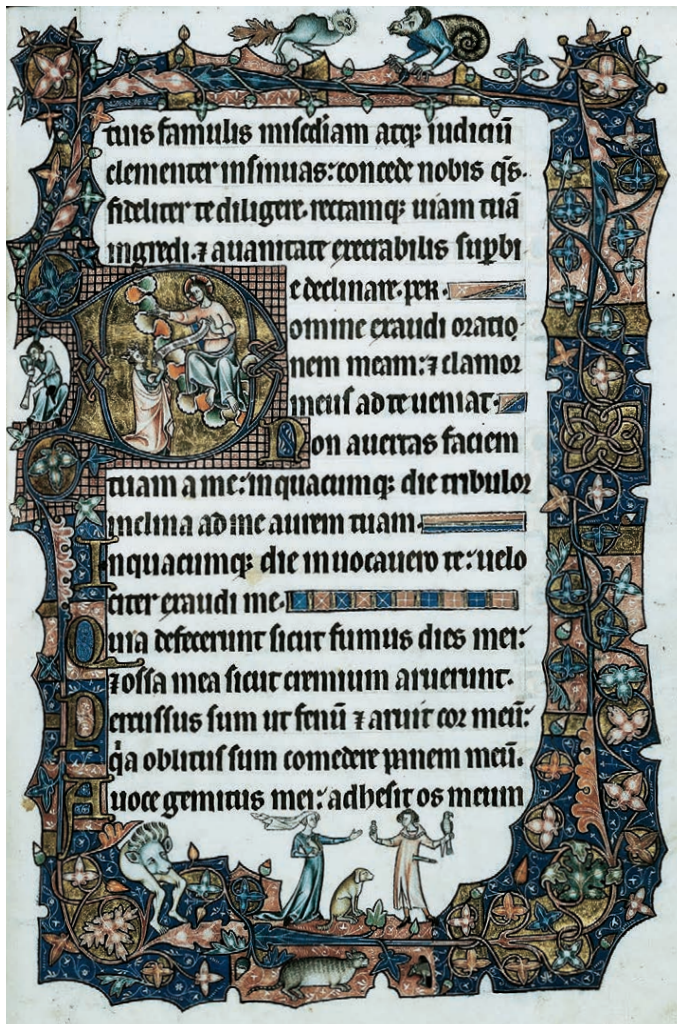 tuis famulis misc̄diam atq; iudiciū
clementer insinuas: concede nobis q̄s.
fideliter te diligere. rectamq; uiam tuā
ingredi. ⁊ a uanitate execrabilis suꝑbi
e declinare. per.
Domine exaudi oratio
nem meam: ⁊ clamor
meus ad te ueniat.
Non auertas faciem
tuam a me: in quacumq; die tribulor
inclina ad me aurem tuam.
In quacumq; die inuocauero te: uelo
citer exaudi me.
Quia defecerunt sicut fumus dies mei:
⁊ ossa mea sicut cremium aruerunt.
Percussus sum ut fenū ⁊ aruit cor meū:
qͥa oblitus sum comedere panem meū.
A uoce gemitus mei: adhesit os meum